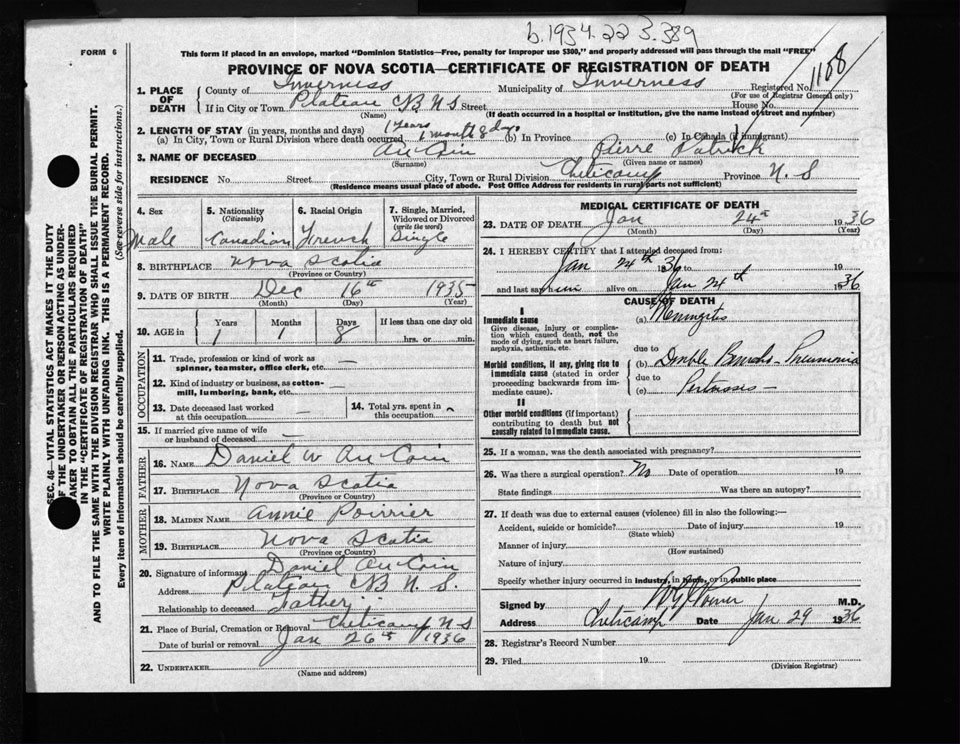 b.1934.22 3.389
FORM 6
This form if placed in an envelope, marked "Dominion Statistics—Free, penalty for improper use $300," and properly addressed will pass through the mail "FREE"
PROVINCE OF NOVA SCOTIA—CERTIFICATE OF REGISTRATION OF DEATH
1. PLACE OF DEATH
County of Inverness Municipality of Inverness Registered No. 1168
(For use of Registrar General only)
If in City or Town Plateau CB NS Street House No.
(Name) (If death occurred in a hospital or institution, give the name instead of street and number)
2. LENGTH OF STAY (in years, months and days) 1 years
(a) In City, Town or Rural Division where death occurred 1 month 8 days (b) In Province (c) In Canada (if immigrant)
3. NAME OF DECEASED AuCoin Pierre Patrick
(Surname) (Given name or names)
RESIDENCE No. Street City, Town or Rural Division Cheticamp Province N. S
(Residence means usual place of abode. Post Office Address for residents in rural parts not sufficient)
4. Sex
Male
5. Nationality
(Citizenship)
Canadian
6. Racial Origin
French
7. Single, Married, Widowed or Divorced
(write the word)
Single
8. BIRTHPLACE Nova Scotia
(Province or Country)
9. DATE OF BIRTH Dec 16th 1935
(Month) (Day) (Year)
10. AGE in
Years Months Days If less than one day old
1 1 8 hrs. or min.
OCCUPATION
11. Trade, profession or kind of work as —
spinner, teamster, office clerk, etc.
12. Kind of industry or business, as cotton-
mill, lumbering, bank, etc.
13. Date deceased last worked
at this occupation
14. Total yrs. spent in
this occupation
15. If married give name of wife
or husband of deceased —
FATHER
16. NAME Daniel W AuCoin
17. BIRTHPLACE Nova Scotia
(Province or Country)
MOTHER
18. MAIDEN NAME Annie Poirrier
19. BIRTHPLACE Nova Scotia
(Province or Country)
20. Signature of informant Daniel AuCoin
Address Plateau CB N. S.
Relationship to deceased Father
21. Place of Burial, Cremation or Removal Cheticamp N S
Date of burial or removal Jan 26th 1936
22. UNDERTAKER
(Name and address)
MEDICAL CERTIFICATE OF DEATH
23. DATE OF DEATH Jan 24th 1936
(Month) (Day) (Year)
24. I HEREBY CERTIFY that I attended deceased from:
Jan 24th 1936 to 19
and last saw him alive on Jan 24th 1936
CAUSE OF DEATH
I
Immediate cause
Give disease, injury or complica-
tion which caused death, not the
mode of dying, such as heart failure,
asphyxia, asthenia, etc.
(a) Meningitis
due to
Morbid conditions, if any, giving rise to
immediate cause (stated in order
proceeding backwards from im-
mediate cause).
(b) Double Broncho-Pneumonia
due to
(c) Pertussis —
II
Other morbid conditions (if important)
contributing to death but not
causally related to immediate cause.
25. If a woman, was the death associated with pregnancy?
26. Was there a surgical operation? No Date of operation 19
State findings Was there an autopsy?
27. If death was due to external causes (violence) fill in also the following:—
Accident, suicide or homicide? Date of injury 19
(State which)
Manner of injury
(How sustained)
Nature of injury
Specify whether injury occurred in industry, in home, or in public place
Signed by M.D.
Address Cheticamp Date Jan 29 1936
28. Registrar's Record Number
29. Filed 19
(Division Registrar)
SEC. 46—VITAL STATISTICS ACT MAKES IT THE DUTY
OF THE UNDERTAKER OR PERSON ACTING AS UNDER-
TAKER TO OBTAIN ALL THE PARTICULARS REQUIRED
IN THE "CERTIFICATE OF REGISTRATION OF DEATH"
AND TO FILE THE SAME WITH THE DIVISION REGISTRAR WHO SHALL ISSUE THE BURIAL PERMIT.
WRITE PLAINLY WITH UNFADING INK. THIS IS A PERMANENT RECORD.
Every item of information should be carefully supplied. (See reverse side for instructions.)